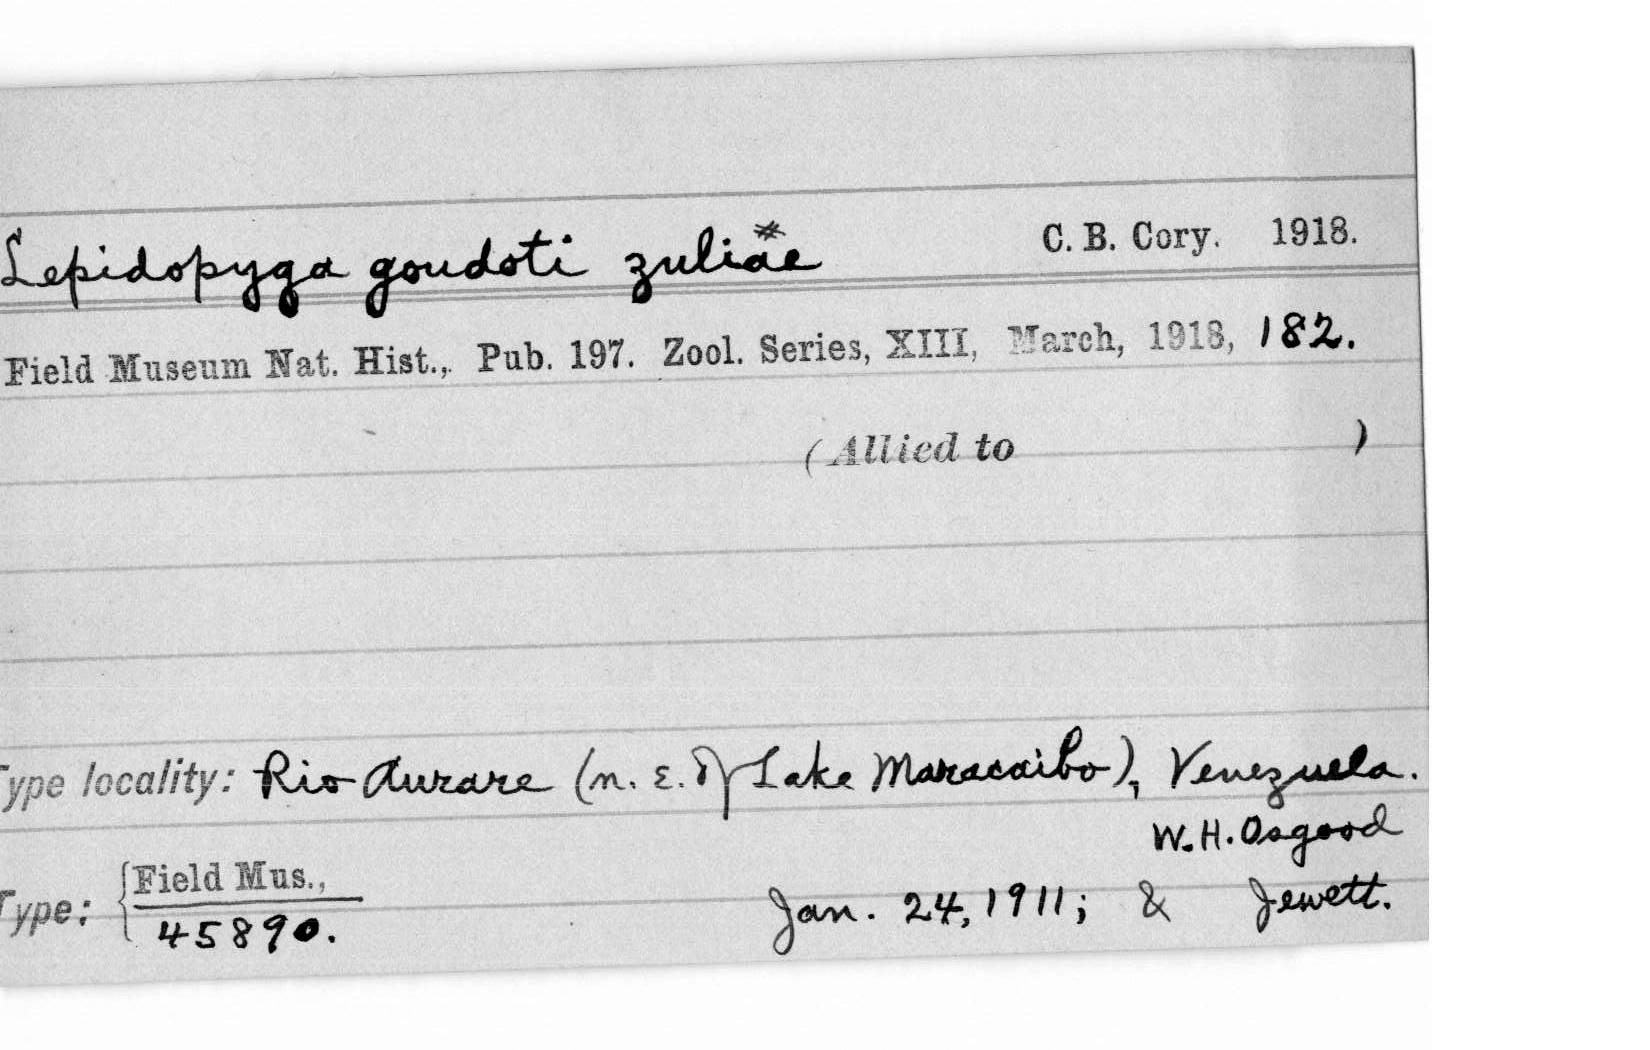 Lepidopyga goudoti zuliae* C. B. Cory. 1918.
Field Museum Nat. Hist., Pub. 197. Zool. Series, XIII, March, 1918, 182.
(Allied to )
Type locality: Rio Aurare (n. E. of Lake Maracaibo), Venezuela.
W. H. Osgood
Type: {Field Mus., Jan. 24, 1911; & Jewett.
45890.